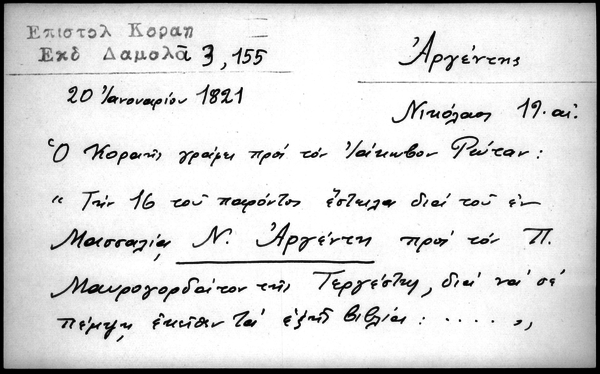 Επιστολ Κοραη
Εκδ Δαμαλᾶ 3, 155
Ἀργέντης
20 Ἰανουαρίου 1821
Νικόλαος 19. αἰ.
Ὁ Κοραῆς γράφει πρός τόν Ἰάκωβον Ρώταν :
" Τήν 16 τοῦ παρόντος ἔστειλα διά τοῦ ἐν
Μασσαλίᾳ Ν. Ἀργέντη πρός τόν Π.
Μαυρογορδάτον τῆς Τεργέστης, διά νά σέ
πέμψῃ ἐκεῖθεν τά ἑξῆς βιβλία : ..... "